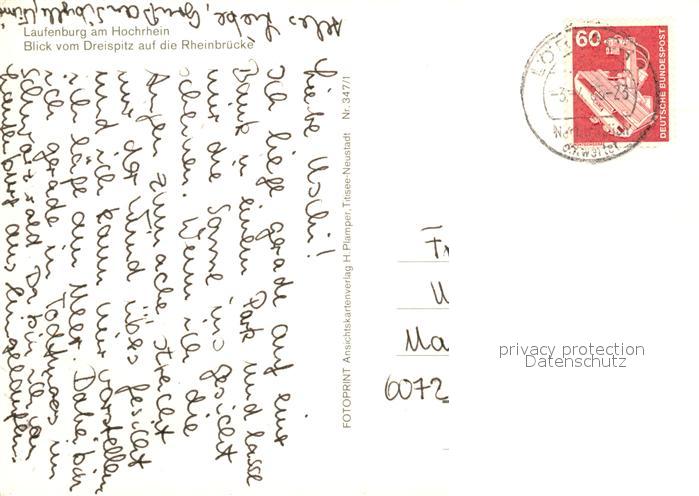 Laufenburg am Hochrhein
Blick vom Dreispitz auf die Rheinbrücke
Liebe Uschi!
Ich liege gerade auf einer
Bank in einem Park und lasse
mir die Sonne ins Gesicht
scheinen. Wenn ich die
Augen zumache streicht
mir der Wind übers Gesicht
und ich kann mir vorstellen
ich läge am Meer. Dabei bin
ich gerade in Todtmoos im
Schwarzwald. Da bin ich
aus
Alles Liebe, Gruß an
FOTOPRINT Ansichtskartenverlag H. Plamper, Titisee-Neustadt Nr. 347/1
60
DEUTSCHE BUNDESPOST
Fr
U
Ma
6072
privacy protection
Datenschutz